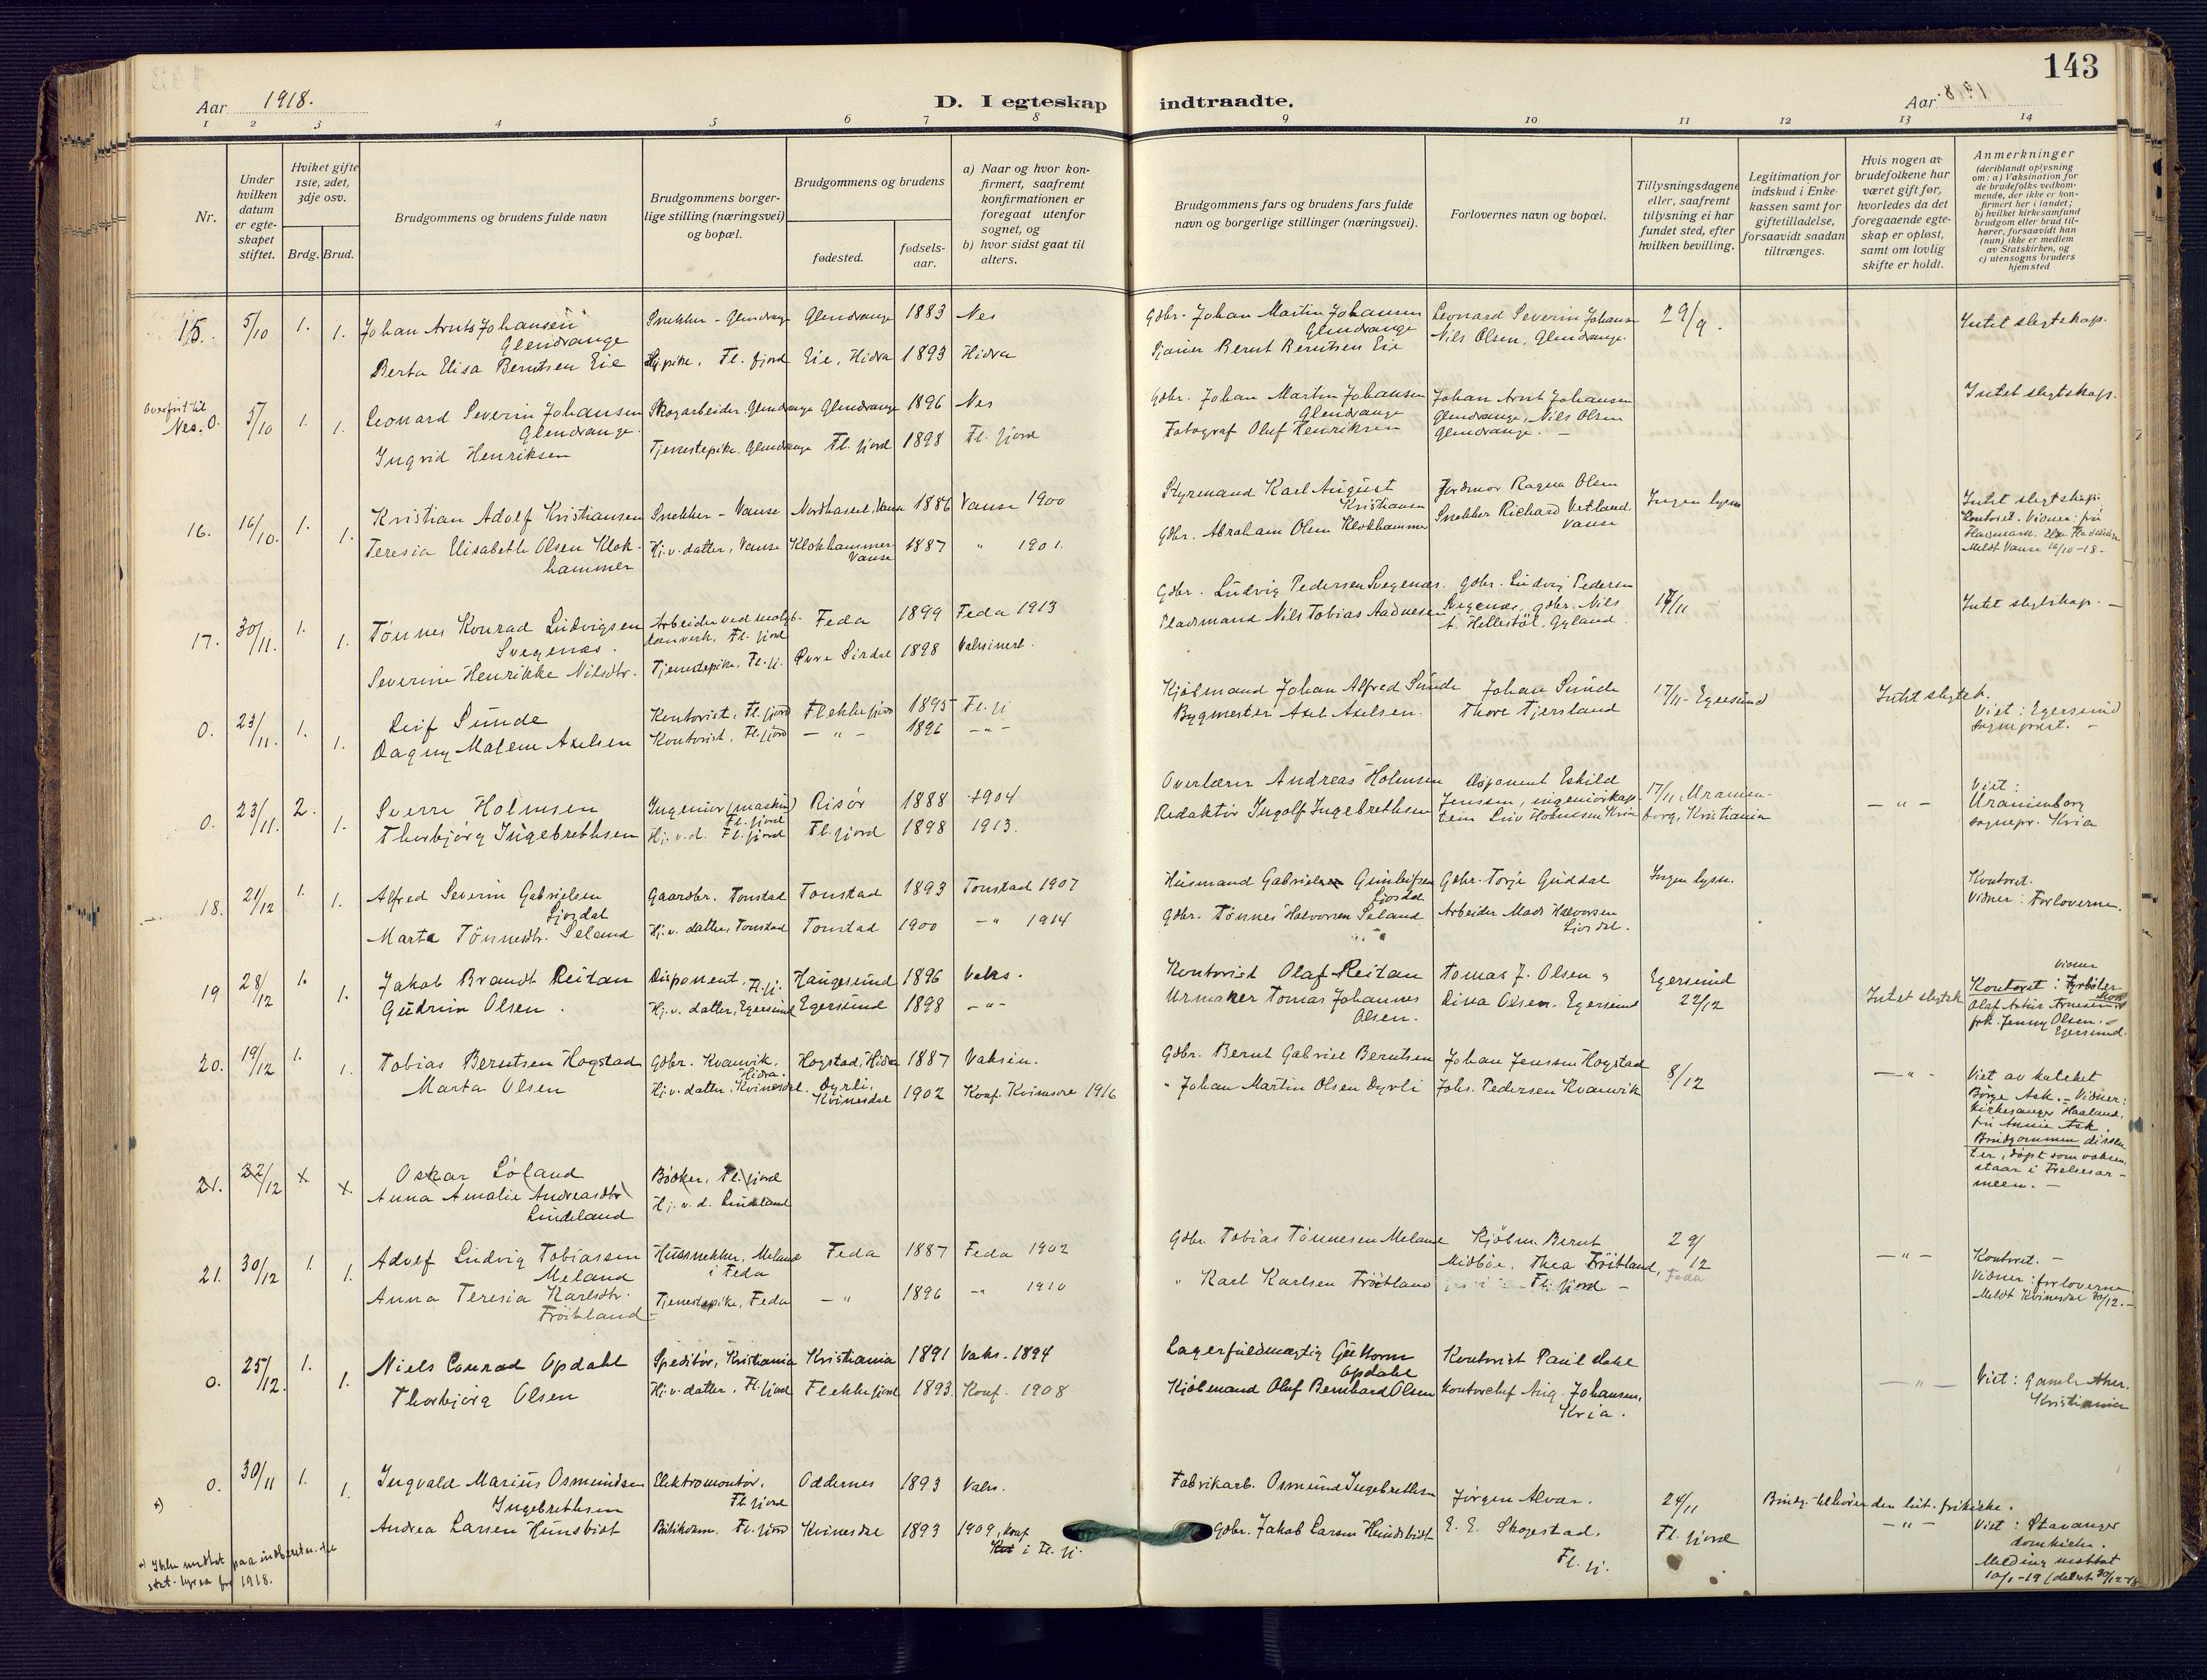 143
Aar 1918.
D. I egteskap indtraadte.
Aar 1918.
1 2 3 4 5 6 7 8 9 10 11 12 13 14
Nr.
Under hvilken datum er egteskapet stiftet.
Hviket gifte 1ste, 2det, 3dje osv.
Brdg. Brud.
Brudgommens og brudens fulde navn
Brudgommens borgerlige stilling (næringsvei) og bopæl.
Brudgommens og brudens
fødested.
fødselsaar.
a) Naar og hvor konfirmert, saafremt konfirmationen er foregaat utenfor sognet, og
b) hvor sidst gaat til alters.
Brudgommens fars og brudens fars fulde navn og borgerlige stillinger (næringsvei).
Forlovernes navn og bopæl.
Tillysningsdagene eller, saafremt tillysning ei har fundet sted, efter hvilken bevilling.
Legitimation for indskud i Enkekassen samt for giftetilladelse, forsaavidt saadan tiltrænges.
Hvis nogen av brudefolkene har været gift før, hvorledes da det foregaaende egteskap er opløst, samt om lovlig skifte er holdt.
Anmerkninger
(deriblandt oplysning om: a) Vaksination for de brudefolks vedkommende, der ikke er konfirmert her i landet;
b) hvilket kirkesamfund brudgom eller brud tilhører, forsaavidt han (hun) ikke er medlem av Statskirken, og
c) utensogns bruders hjemsted
15. 5/10 1. 1. Johan Arnts Johansen Snekker - Glendrange Glendrange 1883 Nes Gdbr. Johan Martin Johansen Leonard Severin Johansen 29/9. Intet slegtskap.
Glendrange Glendrange Nils Olsen, Glendrange.
Berta Elisa Berntsen Eie Hj.pike, Fl. fjord Eie, Hidra 1893 Hidra Bernt Berntsen Eie
Overført til Nes. 0. 5/10 1. 1. Leonard Severin Johansen Skogarbeider. Glendrange Glendrange 1896 Nes Gdbr. Johan Martin Johansen Johan Arnt Johansen Intet slegtskap.
Glendrange. Glendrange Glendrange, Nils Olsen
Ingrid Henriksen Tjenestepike. Glendrange Fl. fjord 1898 Fl. fjord Fotograf Oluf Henriksen Glendrange. -
16. 16/10. 1. 1. Kristian Adolf Kristiansen Snekker - Vanse Nordhassel, Vanse 1886 Vanse 1900 Styrmand Karl August Kristiansen Jordmor Ragna Olsen Ingen lysn Intet slegtskap.
Snekker Richard Vetland. Vanse
Teresia Elisabeth Olsen Klokhammer Hj.v. datter, Vanse Klokhammer Vanse 1887 " 1901. Gdbr. Abraham Olsen Klokhammer
Kontoret. Vidner: fru
Meldt Vanse 16/10-18.
17. 30/11. 1. 1. Tønnes Konrad Ludvigsen Arbeider ved Feda 1899 Feda 1913 Gdbr. Ludvig Pedersen Svegenæs. Gdbr. Ludvig Pedersen 17/11 Intet slegtskap. -
Svegenæs. Fl. fjord Svegenæs, gdbr. Nils
Severine Henrikke Nilsdtr. Tjenestepike, Fl.fj. Øvre Sirdal 1898 Vaksinert. Pladsmand Nils Tobias Aadnesen A. Hellestøl, Gyland.
0. 23/11. 1. 1. Leif Sunde Kontorist, Fl. fjord Flekkefjord 1895 Fl. fj Kjøbmand Johan Alfred Sunde Johan Sunde 17/11 - Egersund Intet slegtsk.
Dagny Malene Axelsen Kontorist, Fl. fjord - " - 1896 - " - Bygmester Axel Axelsen. Thore Tjersland Viet: Egersund
sogneprest. -
0. 23/11. 2. 1. Sverre Holmsen Ingeniør (maskin) Fl. fjord Risør 1888 1904 Overlærer Andreas Holmsen Disponent Eskild 17/11, Uranienborg, Kristiania - " - Viet:
Thorbjørg Ingebrethsen Hj. v. d. Fl. fjord Fl. fjord 1898 1913. Redaktør Ingolf Ingebrethsen Jenssen, ingeniørkaptein Leiv Holmsen Kria Uranienborg
sognepr. Kria
18. 21/12 1. 1. Alfred Severin Gabrielsen Gaardbr. Tonstad Tonstad 1893 Tonstad 1907 Husmand Gabriel Gunleifsen Gdbr. Torje Guddal Ingen lysn. Kontoret.
Ljosdal Ljosdal Vidner: Forloverne.
Marta Tønnesdtr. Seland Hj. v. datter, Tonstad Tonstad 1900 - " 1914 Gdbr. Tønnes Halvorsen Seland Arbeider Mads Halvorsen
Ljosdal.
19 28/12 1. 1. Jakob Brandt Reitan Disponent, Fl.fj. Haugesund 1896 Vaks. Kontorist Olaf Reitan Tomas J. Olsen " Egersund Intet slegtsk
Gudrun Olsen. Hj. v. datter, Egersund Egersund 1898 - " - Urmaker Tomas Johannes Olsen. Dina Olsen. Egersund 22/12
vidner
Kontoret: Fyrbøter
Olaf Artur
frk. Jenny Olsen.
Egersund.
20. 19/12 1. 1. Tobias Berntsen Hogstad Gdbr. Kvanvik. Hidra. Hogstad, Hidra 1887 Vaksin. Gdbr. Bernt Gabriel Berntsen Johan Jenssen Hogstad 8/12 - " -
Marta Olsen Hj. v. datter, Kvinesdal. Dyrli, Kvinesdal 1902 Konf. Kvinesdal 1916 " Johan Martin Olsen Dyrli Johs. Pedersen Kvanvik
Viet av kateket
Børge Ask. - Vidner:
Kirkesanger Haaland,
fru Annie Ask.
Brudgommen dissenter, døpt som voksen,
staar i Frelsesarmeen. -
21. 22/12 x x Oskar Løland Bødker, Fl. fjord
Anna Amalie Andreasdtr. Hj. v. d. Lindeland
Lindeland
21. 30/12 1. 1. Adolf Ludvig Tobiassen Hussnekker, Meland Feda 1887 Feda 1902 Gdbr. Tobias Tønnesen Meland Kjøbm. Bernt 29/12 - " - Kontoret. -
Meland i Feda Midbøe, Thea Frøitland, Feda Vidner: forloverne.
Anna Teresia Karlsdtr. Tjenestepike, Feda - " 1896 - " 1910 " Karl Karlsen Frøitland Fl. fjord - Meldt Kvinesdal 30/12. -
Frøitland
0. 25/12. 1. 1. Niels Conrad Opdahl Speditør, Kristiania Kristiania 1891 Vaks. 1894 Lagerfuldmægtig Guttorm Opdahl Kontorist Paul Dahl - " - Viet: Gamle Aker.
Thorbjørg Olsen Hj. v. datter, Fl. fjord Flekkefjord 1893. Konf. 1908 Kjøbmand Oluf Bernhard Olsen Kontorchef Aug. Johansen. Kristiania
Kria.
0. 30/11 1. 1. Ingvald Marius Osmundsen Elektromontør. Oddernes 1893 Vaks. Fabrikarb. Osmund Ingebrethsen Jørgen Alvar. 24/11 Brudg. tilhører den lut. frikirke.
+) Ingebrethsen Fl. fjord - " - Viet: Stavanger
Andrea Larsen Hunsbidt Fl. fjord Kvinesdal 1893 1909, konf i Fl. fj. Gdbr. Jakob Larsen Hunsbidt E. E. Skogestad. Fl. fjord domkirke.
Fl. fj. Melding mottat
10/1-19 (datert 30/12-18
+) Ikke medtat paa indberetn. til
for 1918.